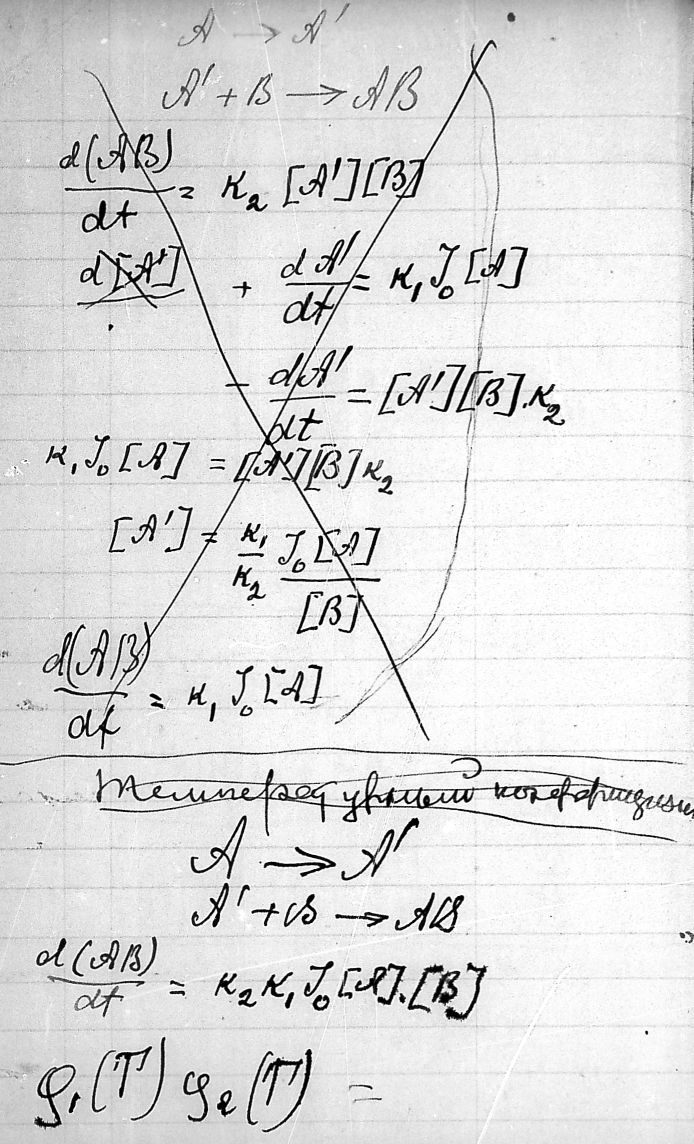 A → A'
A' + B → AB
d(AB)/dt = к₂ [A'][B]
d[A']
+ dA'/dt = к₁J₀[A]
- dA'/dt = [A'][B].к₂
к₁J₀[A] = [A'][B]к₂
[A'] = к₁/к₂ J₀[A]/[B]
d(AB)/dt = к₁J₀[A]
Температурный коэффициент
A → A'
A' + B → AB
d(AB)/dt = к₂к₁J₀[A].[B]
φ₁(T) φ₂(T) =